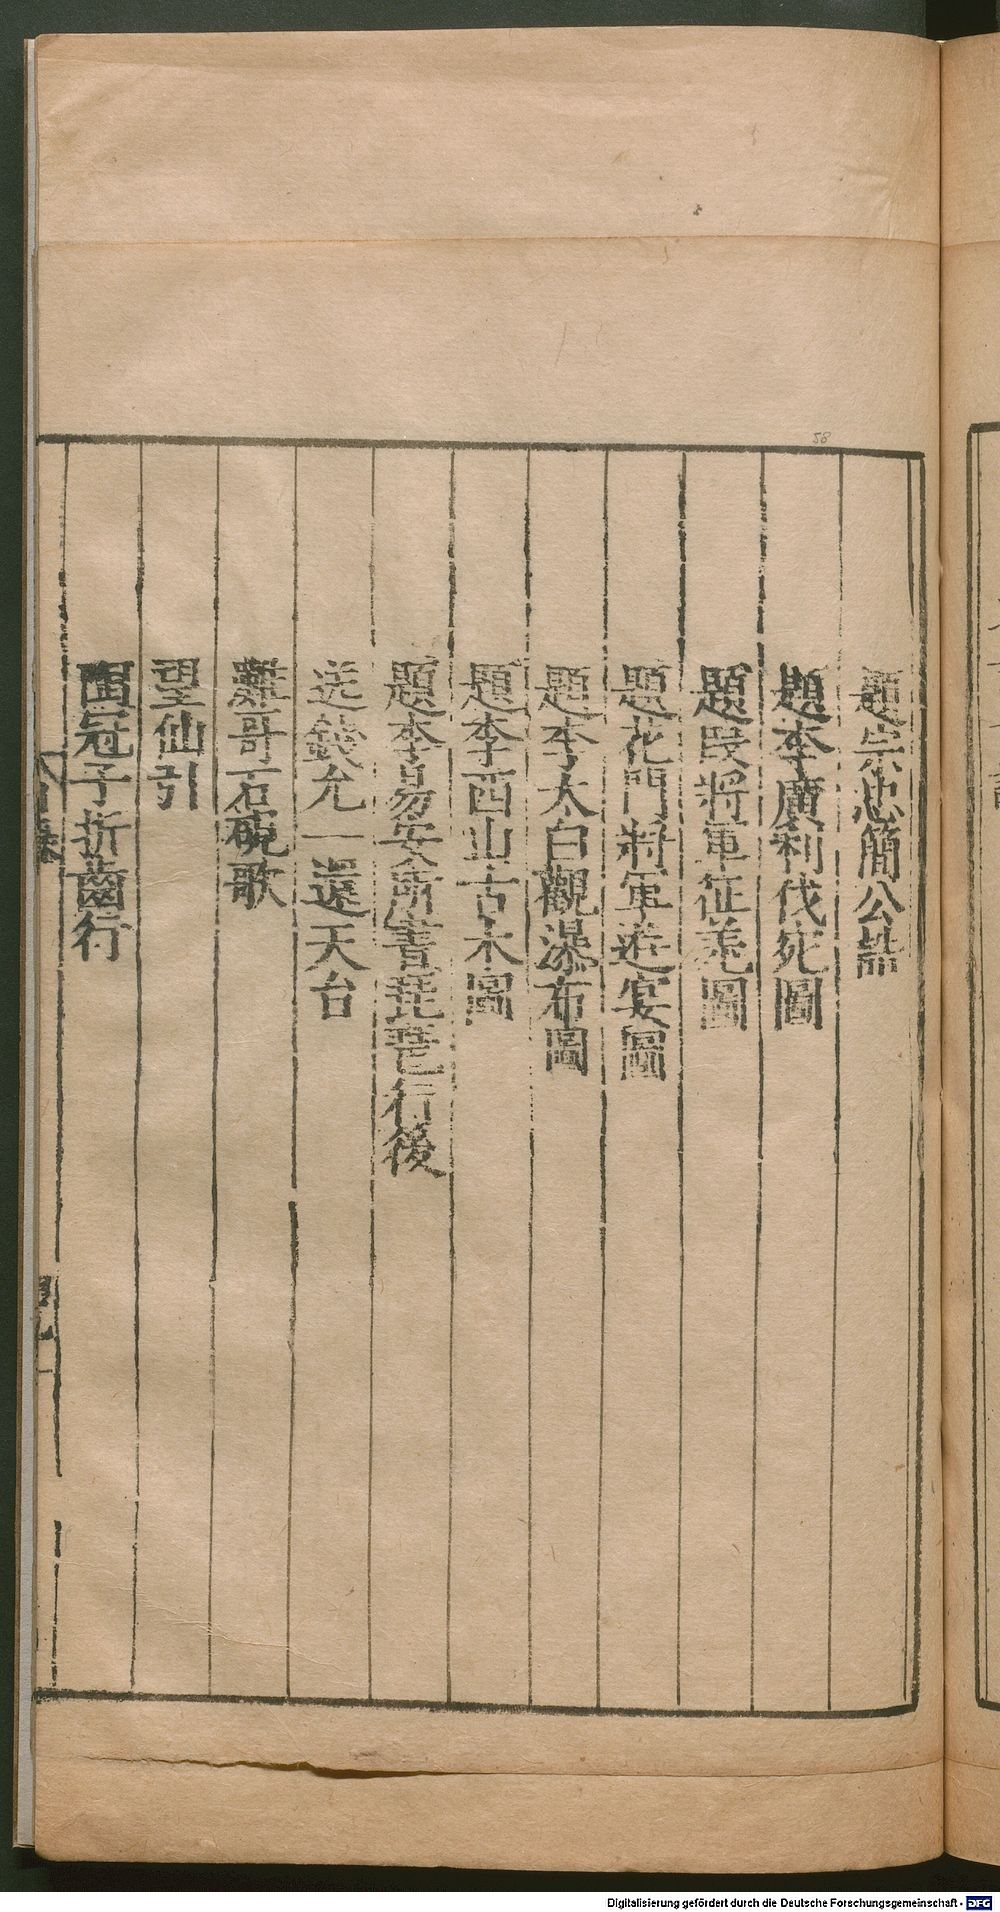 題宗忠簡公誥
題李廣利伐宛圖
題段將軍征羌圖
題花門將軍遊宴圖
題李太白觀瀑布圖
題李西山古木圖
題李易安所書琵琶行後
送錢允一還天台
難哥石硯歌
望仙引
圉冠子折齒行
58
Digitalisierung gefördert durch die Deutsche Forschungsgemeinschaft - DFG